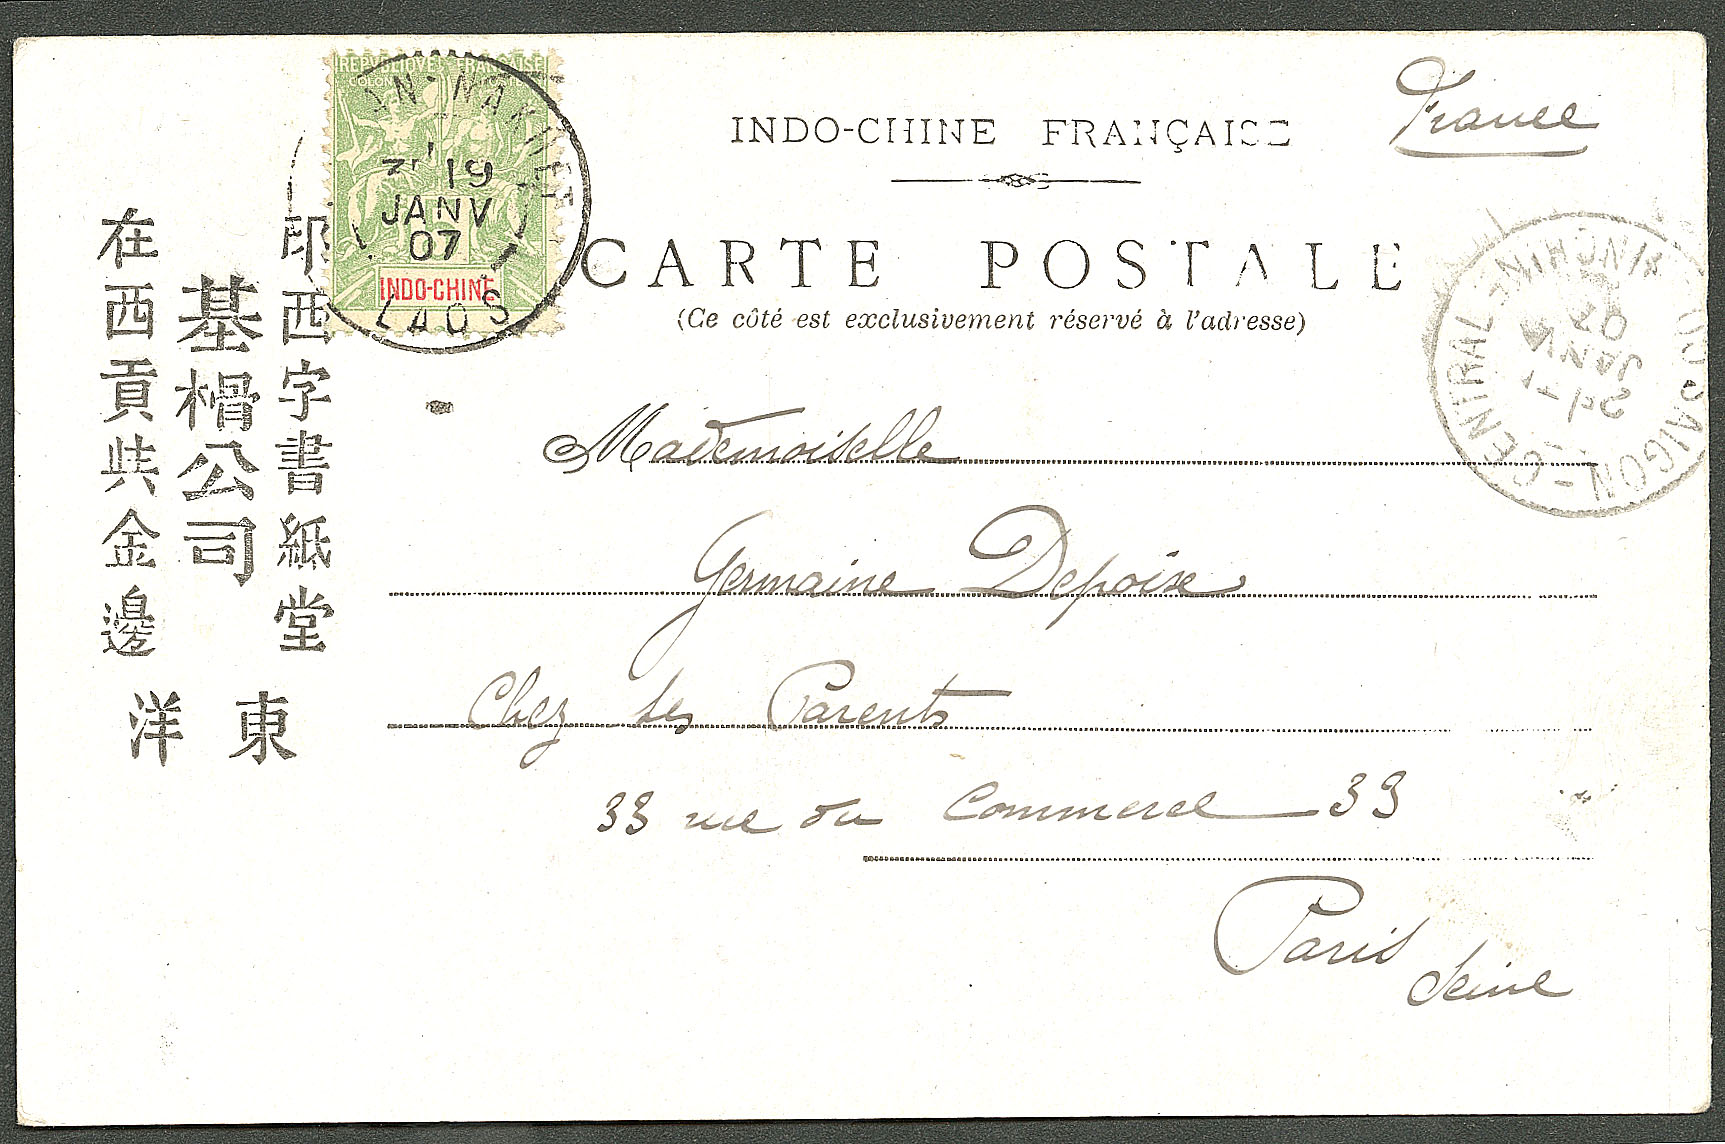 REPUBLIQUE FRANÇAISE
INDO-CHINE
19
JANV
07
LAOS
INDO-CHINE FRANÇAISE
France
CARTE POSTALE
(Ce côté est exclusivement réservé à l'adresse)
SAIGON-CENTRAL
JANV
07
印西字書紙堂
基㮌公司
在西貢共金邊
東洋
Mademoiselle
Germaine Depoise
Chez ses Parents
33 rue du Commerce 33
Paris
Seine